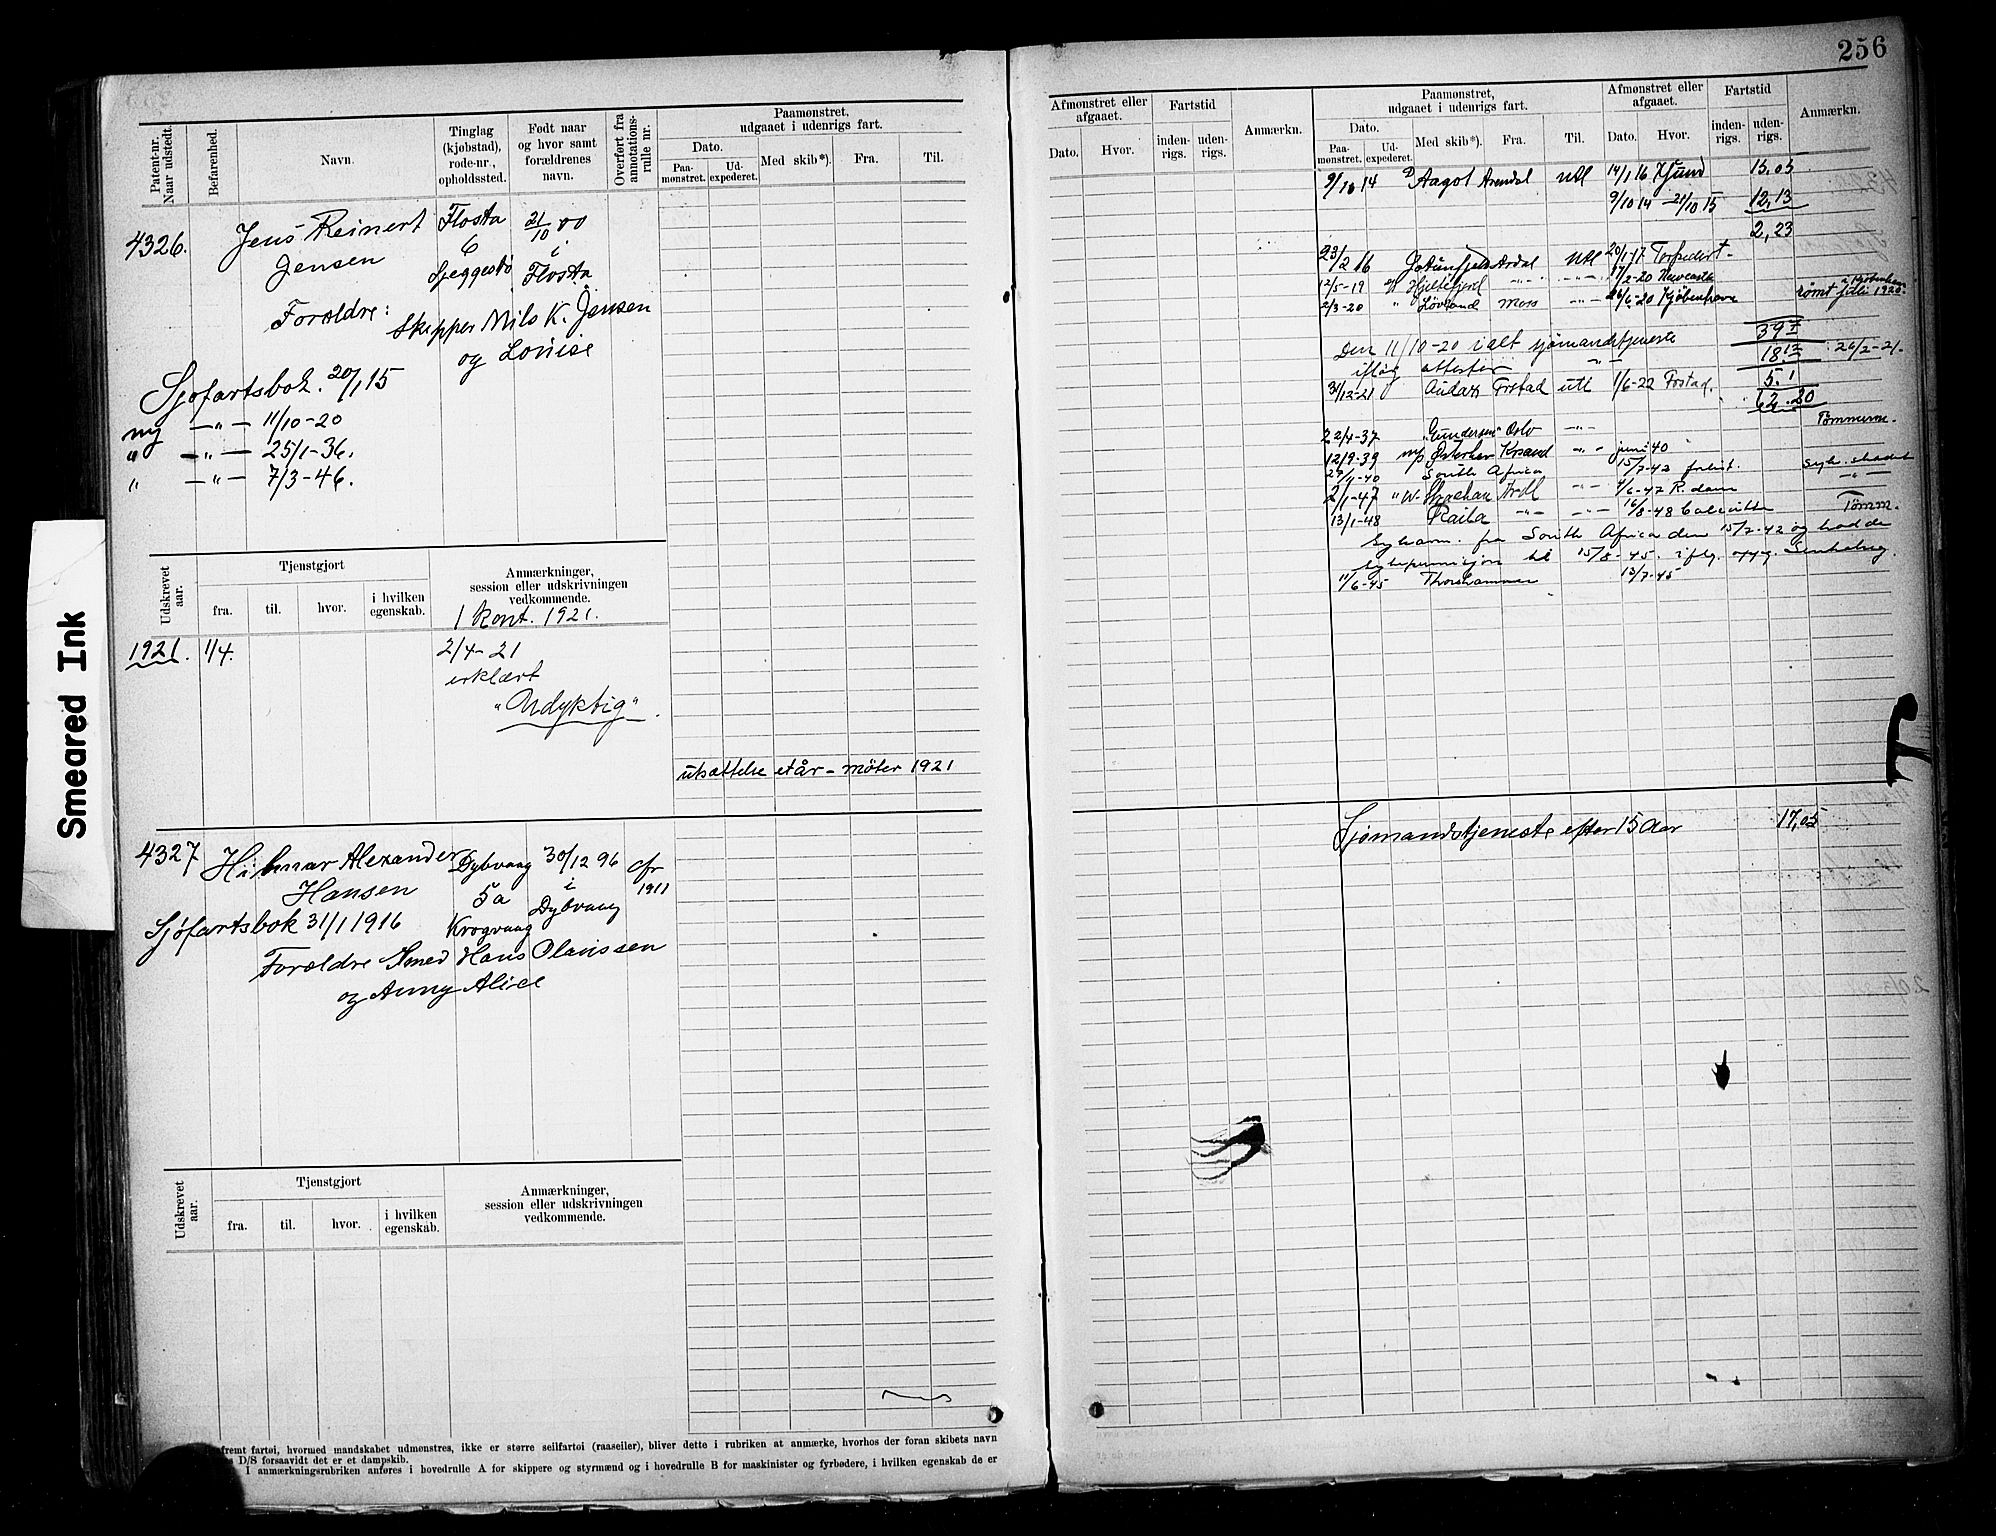 256
Patent-nr. Naar udstedt.
Befarenhed.
Navn.
Tinglag (kjøbstad), rode-nr., opholdssted.
Født naar og hvor samt forældrenes navn.
Overført fra annotationsrulle nr.
Paamønstret, udgaaet i udenrigs fart.
Dato.
Paamønstret.
Udexpederet.
Med skib*).
Fra.
Til.
4326.
Jens Reinert
Jensen
Flosta
6
21/10 00
i
Flosta
Forældre:
Skipper Nils K. Jensen
og Lovise
Sjøfartsbok. 20/1 15
ny —"— 11/10-20
" —"— 25/1-36.
" —"— 7/3-46.
Udskrevet aar.
Tjenstgjort
fra.
til.
hvor.
i hvilken egenskab.
Anmærkninger, session eller udskrivningen vedkommende.
1 Kont. 1921.
1921. 1/4.
2/4-21
erklært
"Udyktig".
utsættelse et år – møter 1921
4327
Hilmar Alexander
Hansen
Dybvaag
5a
Krogvaag
30/12 96
i
Dybvaag
cfr
1911
Sjøfartsbok 31/1 1916
Forældre Smed Hans Olaussen
og Anny Alice
Udskrevet aar.
Tjenstgjort
fra.
til.
hvor.
i hvilken egenskab.
Anmærkninger, session eller udskrivningen vedkommende.
fremt fartøi, hvormed mandskabet udmønstres, ikke er større seilfartøi (raaseiler), bliver dette i rubriken at anmærke, hvorhos der foran skibets navn
D/S forsaavidt det er et dampskib.
I anmærkningsrubriken anføres i hovedrulle A for skippere og styrmænd og i hovedrulle B for maskinister og fyrbødere, i hvilken egenskab de er
Afmønstret eller afgaaet.
Dato.
Hvor.
Fartstid
inden-rigs.
uden-rigs.
Anmærkn.
Paamønstret, udgaaet i udenrigs fart.
Dato.
Paa-mønstret.
Ud-expederet.
Med skib*).
Fra.
Til.
Afmønstret eller afgaaet.
Dato.
Hvor.
Fartstid
inden-rigs.
uden-rigs.
Anmærkn.
9/10 14 Aagot Arendal Utl 14/1 16 15.05
9/10 14 – 21/10 15 12,13
2,23
23/2 16 Utl 20/1-17 Torpedert.
12/5-19 Hjeltefjord —"— 17/2-20 Newcastle
2/3-20 " Løvland Moss —"— 26/6-20 Kjøbenhavn rømt i Kjøbenhavn juli 1920.
Den 11/10-20 i alt sjømandstjeneste 39
ifølg attester 18 26/2-21.
3/12-21 utl 1/6-22 5.1
62.20
22/4-37 "Gundersen" Oslo —"— Tømmerm.
12/9-39 m/s Østerhav Krsand —"— juni 40
27/11-40 South Africa 15/7-42 forlist.
2/1-47 Ardl —"— 4/6-47 R.dam
13/1-48 Raila —"— —"— 16/8-48 Tømm.
fra South Africa den 15/7-42 og hadde
til 15/8-45. iflg. opg.
11/6-45 Thorshammer 13/7-45
Sjømandstjeneste efter 15 Aar 17,05
Smeared Ink